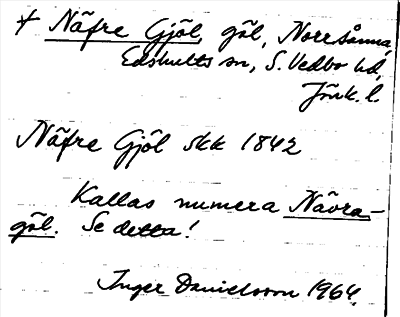 + Näfre Gjöl, göl, Norrsånna,
Edshults sn, S. Vedbo hd,
Jönk. l.
Näfre Gjöl skk 1842
Kallas numera Nävra-
göl. Se detta!
Inger Danielsson 1964.